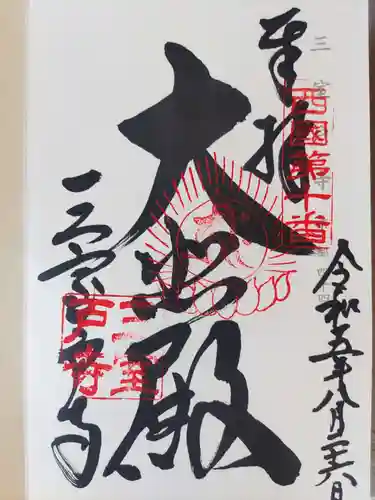 奉拝
西國第十番
大悲殿
三室戸寺
三室
戸寺
令和五年八月二十六日